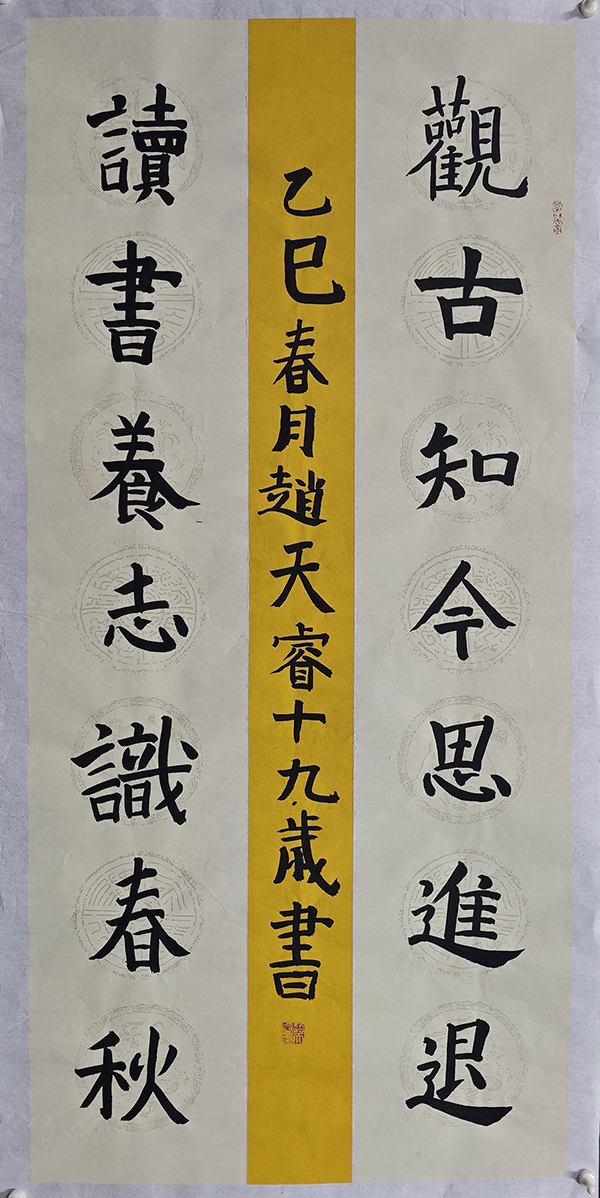 觀古知今思進退
讀書養志識春秋
乙巳春月趙天睿十九歲書